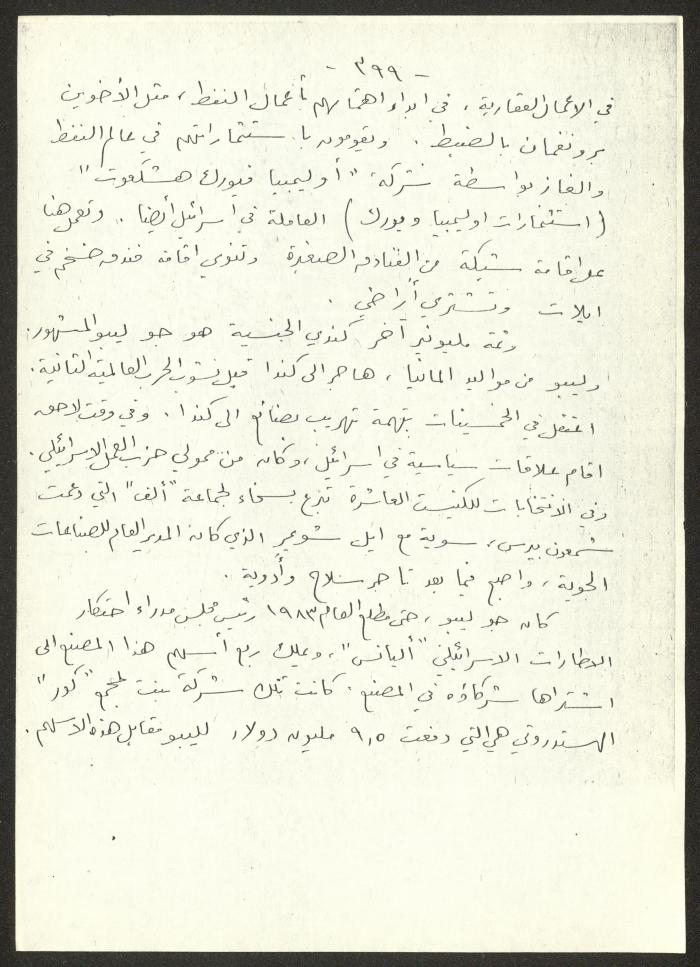 - ٣٩٩ -
في الاعمال العقارية، في ابداء اهتمامهم بأعمال النفط، مثل الأخوين
برونفمان بالضبط. ويقومون باستثماراتهم في عالم النفط
والغاز بواسطة شركة "أوليمبيا فيورك هشكعوت"
(استثمارات اوليمبيا ويورك) العاملة في اسرائيل أيضا. وتعمل هنا
على اقامة شبكة من الفنادق الصغيرة وتنوي اقامة فندق ضخم في
ايلات وتشتري أراضي.
وثمة مليونير آخر كندي الجنسية هو جو ليبو المشهور.
وليبو من مواليد المانيا، هاجر الى كندا قبل نشوب الحرب العالمية الثانية.
اعتقل في الخمسينات بتهمة تهريب بضائع الى كندا. وفي وقت لاحق
اقام علاقات سياسية في اسرائيل، وكان من ممولي حزب العمل الاسرائيلي.
وفي الانتخابات للكنيست العاشرة تبرع بسخاء لجماعة "ألف" التي دعمت
شمعون بيرس، سوية مع ايل شوعير الذي كان المدير العام للصناعات
الجوية، واصبح فيما بعد تاجر سلاح وأدوية.
كان جو ليبو، حتى مطلع العام ١٩٨٣ رئيس مجلس مدراء احتكار
الاطارات الاسرائيلي "أليانس"، ويملك ربع أسهم هذا المصنع الى
اشتراها شركاؤه في المصنع. كانت تلك شركة بنت لمجمع "كور"
الهستدروتي هي التي دفعت ٩,٥ مليون دولار لليبو مقابل هذه الاسهم.